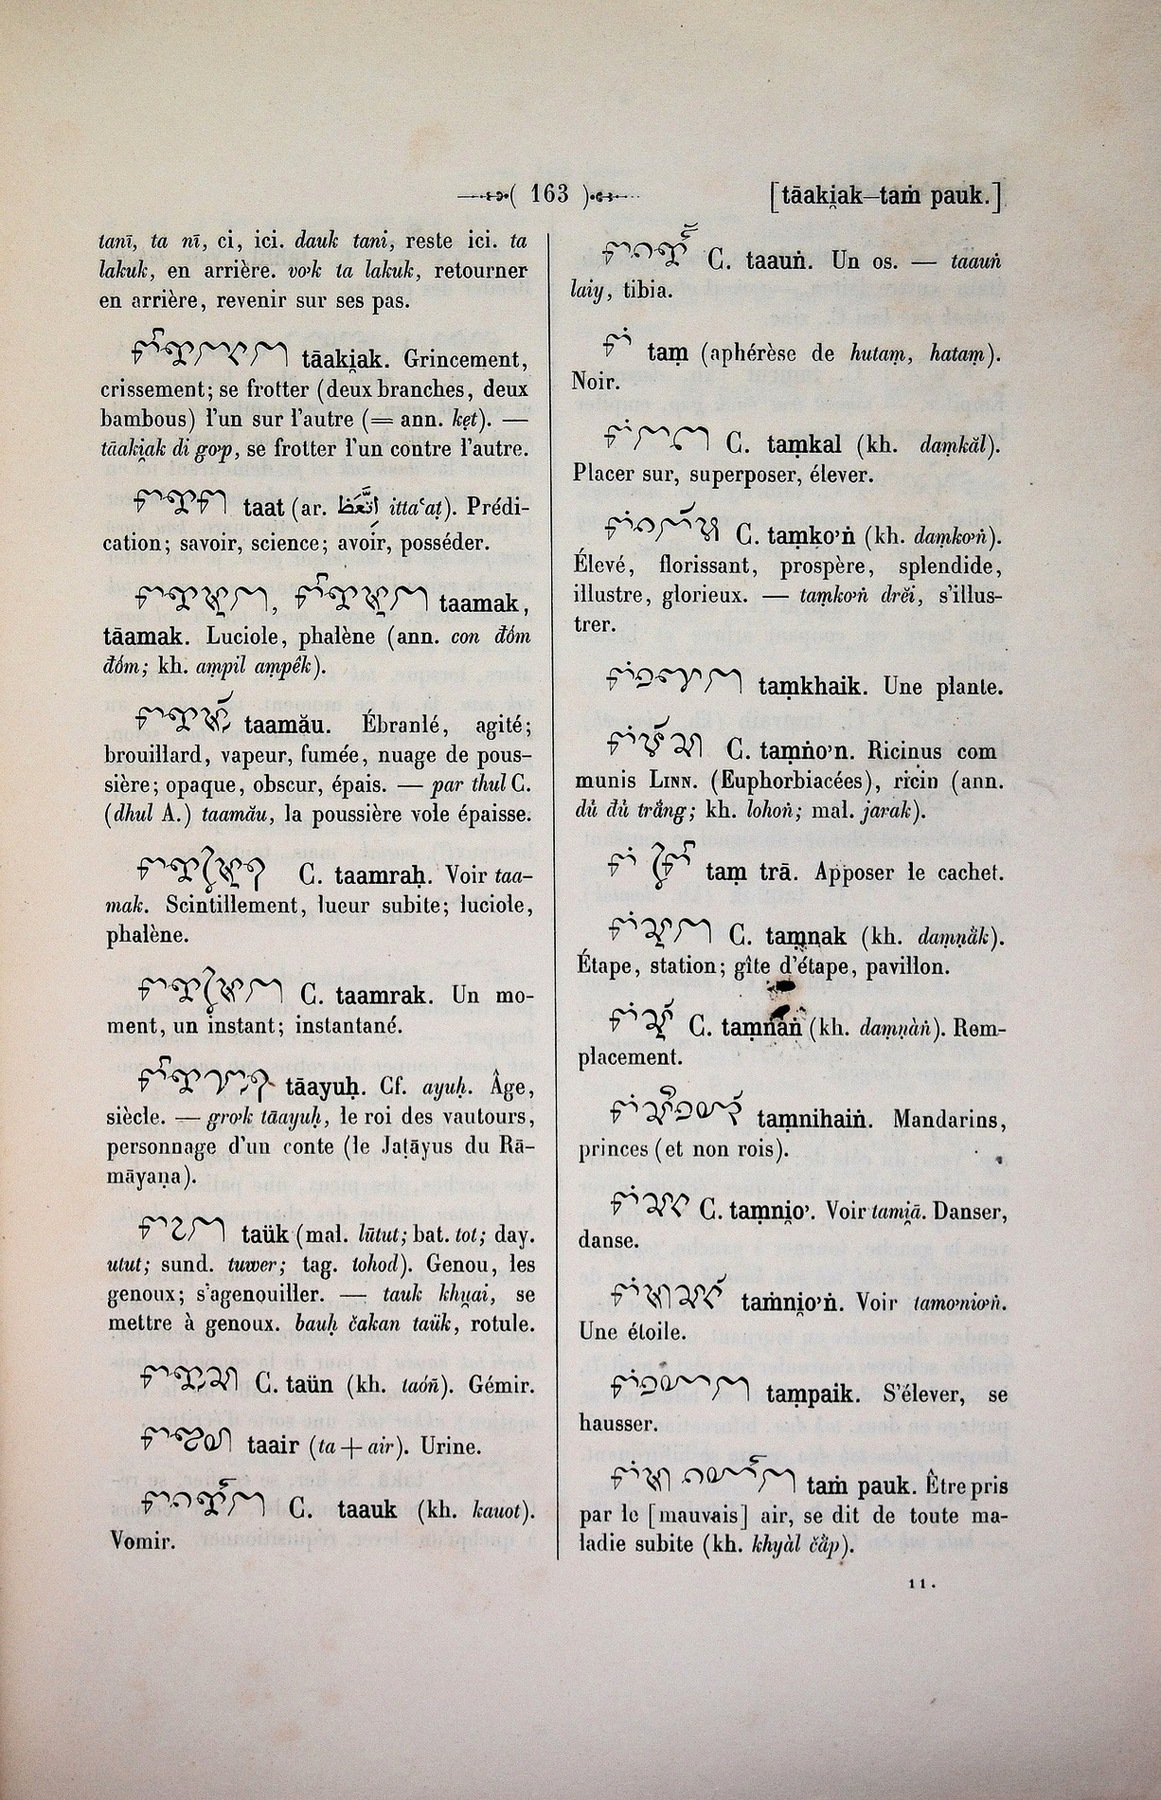 ( 163 ) [tāaki̯ak—taṁ pauk.]
tanī, ta nī, ci, ici. dauk tani, reste ici. ta
lakuk, en arrière. vo̓k ta lakuk, retourner
en arrière, revenir sur ses pas.
tāaki̯ak. Grincement,
crissement; se frotter (deux branches, deux
bambous) l'un sur l'autre (= ann. kẹt). —
tāaki̯ak di go̓p, se frotter l'un contre l'autre.
taat (ar. اتّعظ ittaʿaṭ). Prédi-
cation; savoir, science; avoir, posséder.
, taamak,
tāamak. Luciole, phalène (ann. con đóm
đóm; kh. aṃpil aṃpêk).
taamău. Ébranlé, agité;
brouillard, vapeur, fumée, nuage de pous-
sière; opaque, obscur, épais. — par thul C.
(dhul A.) taamău, la poussière vole épaisse.
C. taamraḥ. Voir taa-
mak. Scintillement, lueur subite; luciole,
phalène.
C. taamrak. Un mo-
ment, un instant; instantané.
tāayuḥ. Cf. ayuḥ. Âge,
siècle. — gro̓k tāayuḥ, le roi des vautours,
personnage d'un conte (le Jaṭāyus du Rā-
māyaṇa).
taük (mal. lūtut; bat. tot; day.
utut; sund. tuwer; tag. tohod). Genou, les
genoux; s'agenouiller. — tauk khu̯ai, se
mettre à genoux. bauḥ čakan taük, rotule.
C. taün (kh. taóñ). Gémir.
taair (ta + air). Urine.
C. taauk (kh. kauot).
Vomir.
C. taauṅ. Un os. — taauṅ
laiy, tibia.
taṃ (aphérèse de hutaṃ, hataṃ).
Noir.
C. taṃkal (kh. daṃkăl).
Placer sur, superposer, élever.
C. taṃko̓ṅ (kh. daṃko̓ṅ).
Élevé, florissant, prospère, splendide,
illustre, glorieux. — taṃko̓ṅ drĕi, s'illus-
trer.
taṃkhaik. Une plante.
C. taṃṅo̓n. Ricinus com
munis Linn. (Euphorbiacées), ricin (ann.
dủ đủ trắng; kh. lohoṅ; mal. jarak).
taṃ trā. Apposer le cachet.
C. taṃnak (kh. daṃṇăk).
Étape, station; gîte d'étape, pavillon.
C. taṃnaṅ (kh. daṃṇàṅ). Rem-
placement.
taṃnihaiṅ. Mandarins,
princes (et non rois).
C. taṃni̯o̓. Voir tami̯ā. Danser,
danse.
taṁni̯o̓ṅ. Voir tamo̓nio̓ṅ.
Une étoile.
taṃpaik. S'élever, se
hausser.
taṁ pauk. Être pris
par le [mauvais] air, se dit de toute ma-
ladie subite (kh. khyàl čăp).
11.